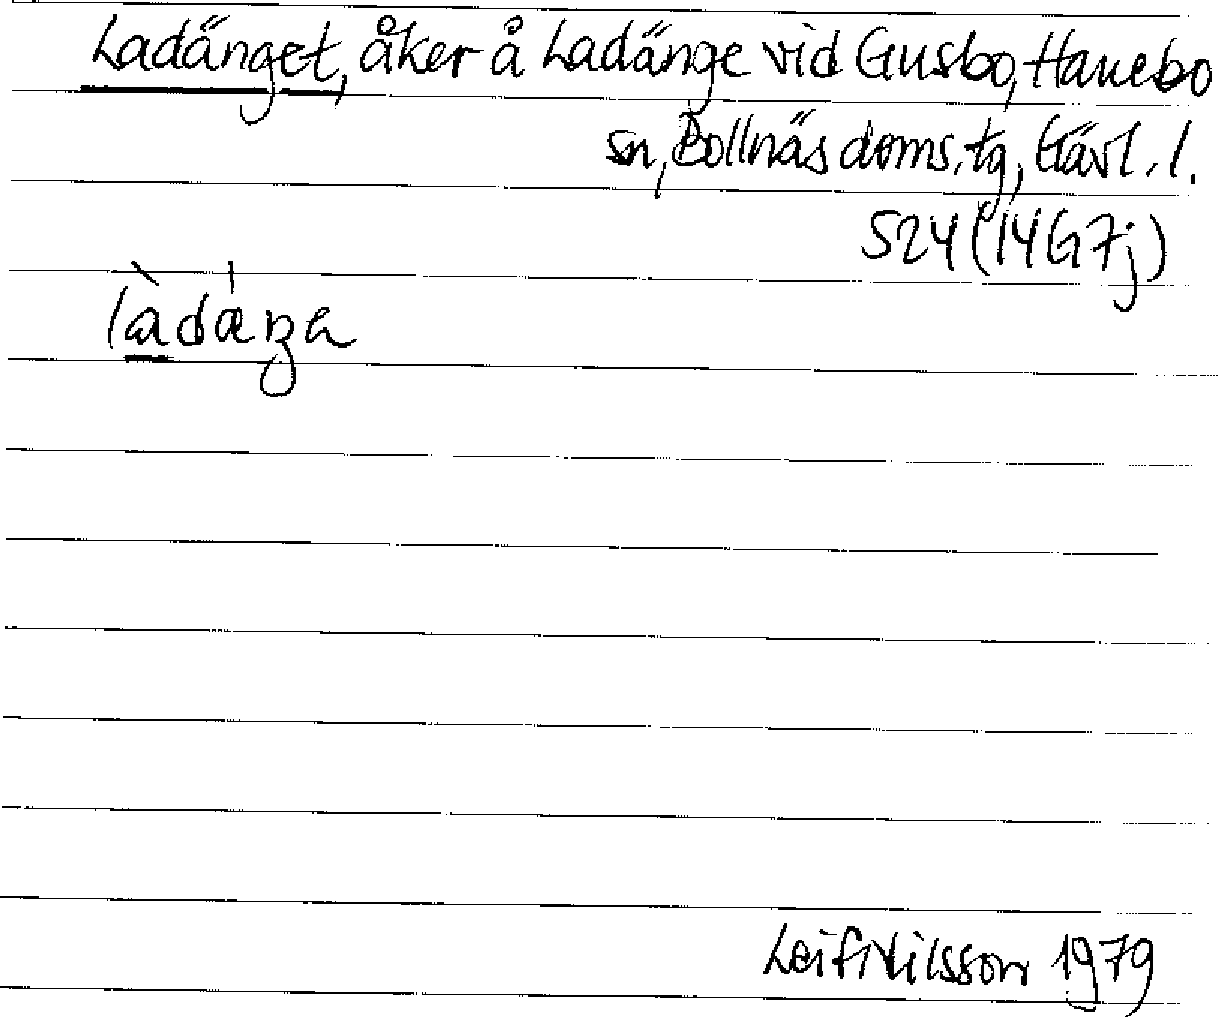 Ladänget, åker å Ladänge vid Gusbo, Hanebo
sn, Bollnäs doms. tg, Gävl. l.
S24 (14G7j)
làdáŋa
Leif Nilsson 1979